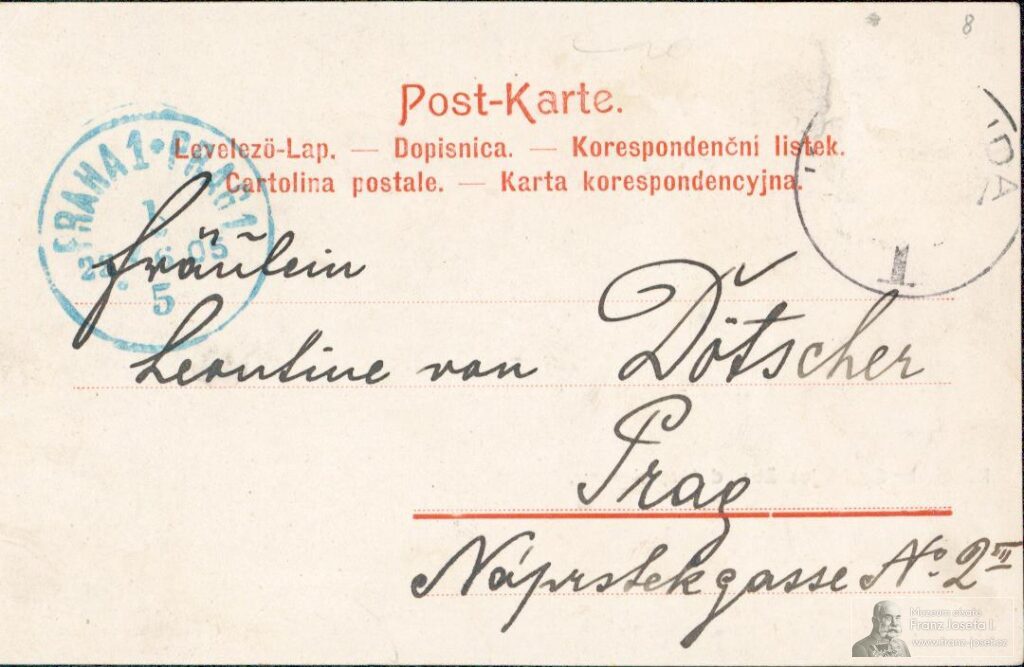 8
Post-Karte.
Levelezö-Lap. — Dopisnica. — Korespondenční listek.
Cartolina postale. — Karta korespondencyjna.
PRAHA 1 • PRAG 1
5
T
Fräulein
Leontine von Dötscher
Prag
Náprstekgasse No. 2
Muzeum císaře
Franz Josefa I.
www.franz-josef.cz